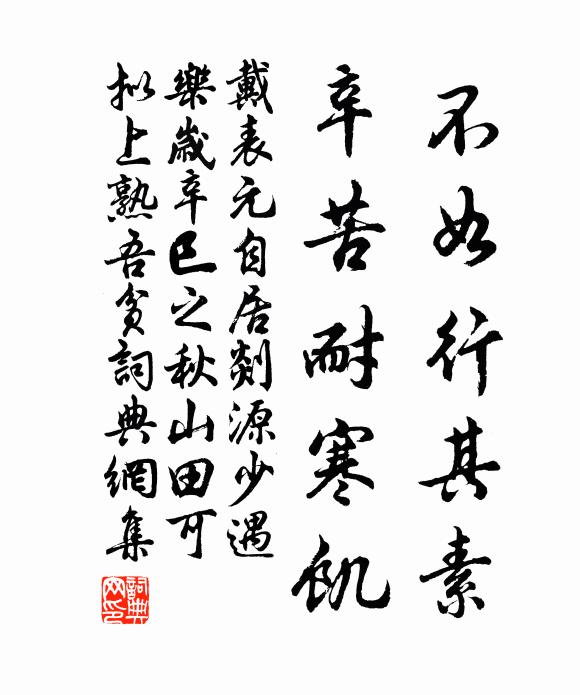 不如行其素
辛苦耐寒飢
戴表元自居剡源少遇
樂歲辛巳之秋山田可
擬上熟吾貧詞典網集
詞典网印